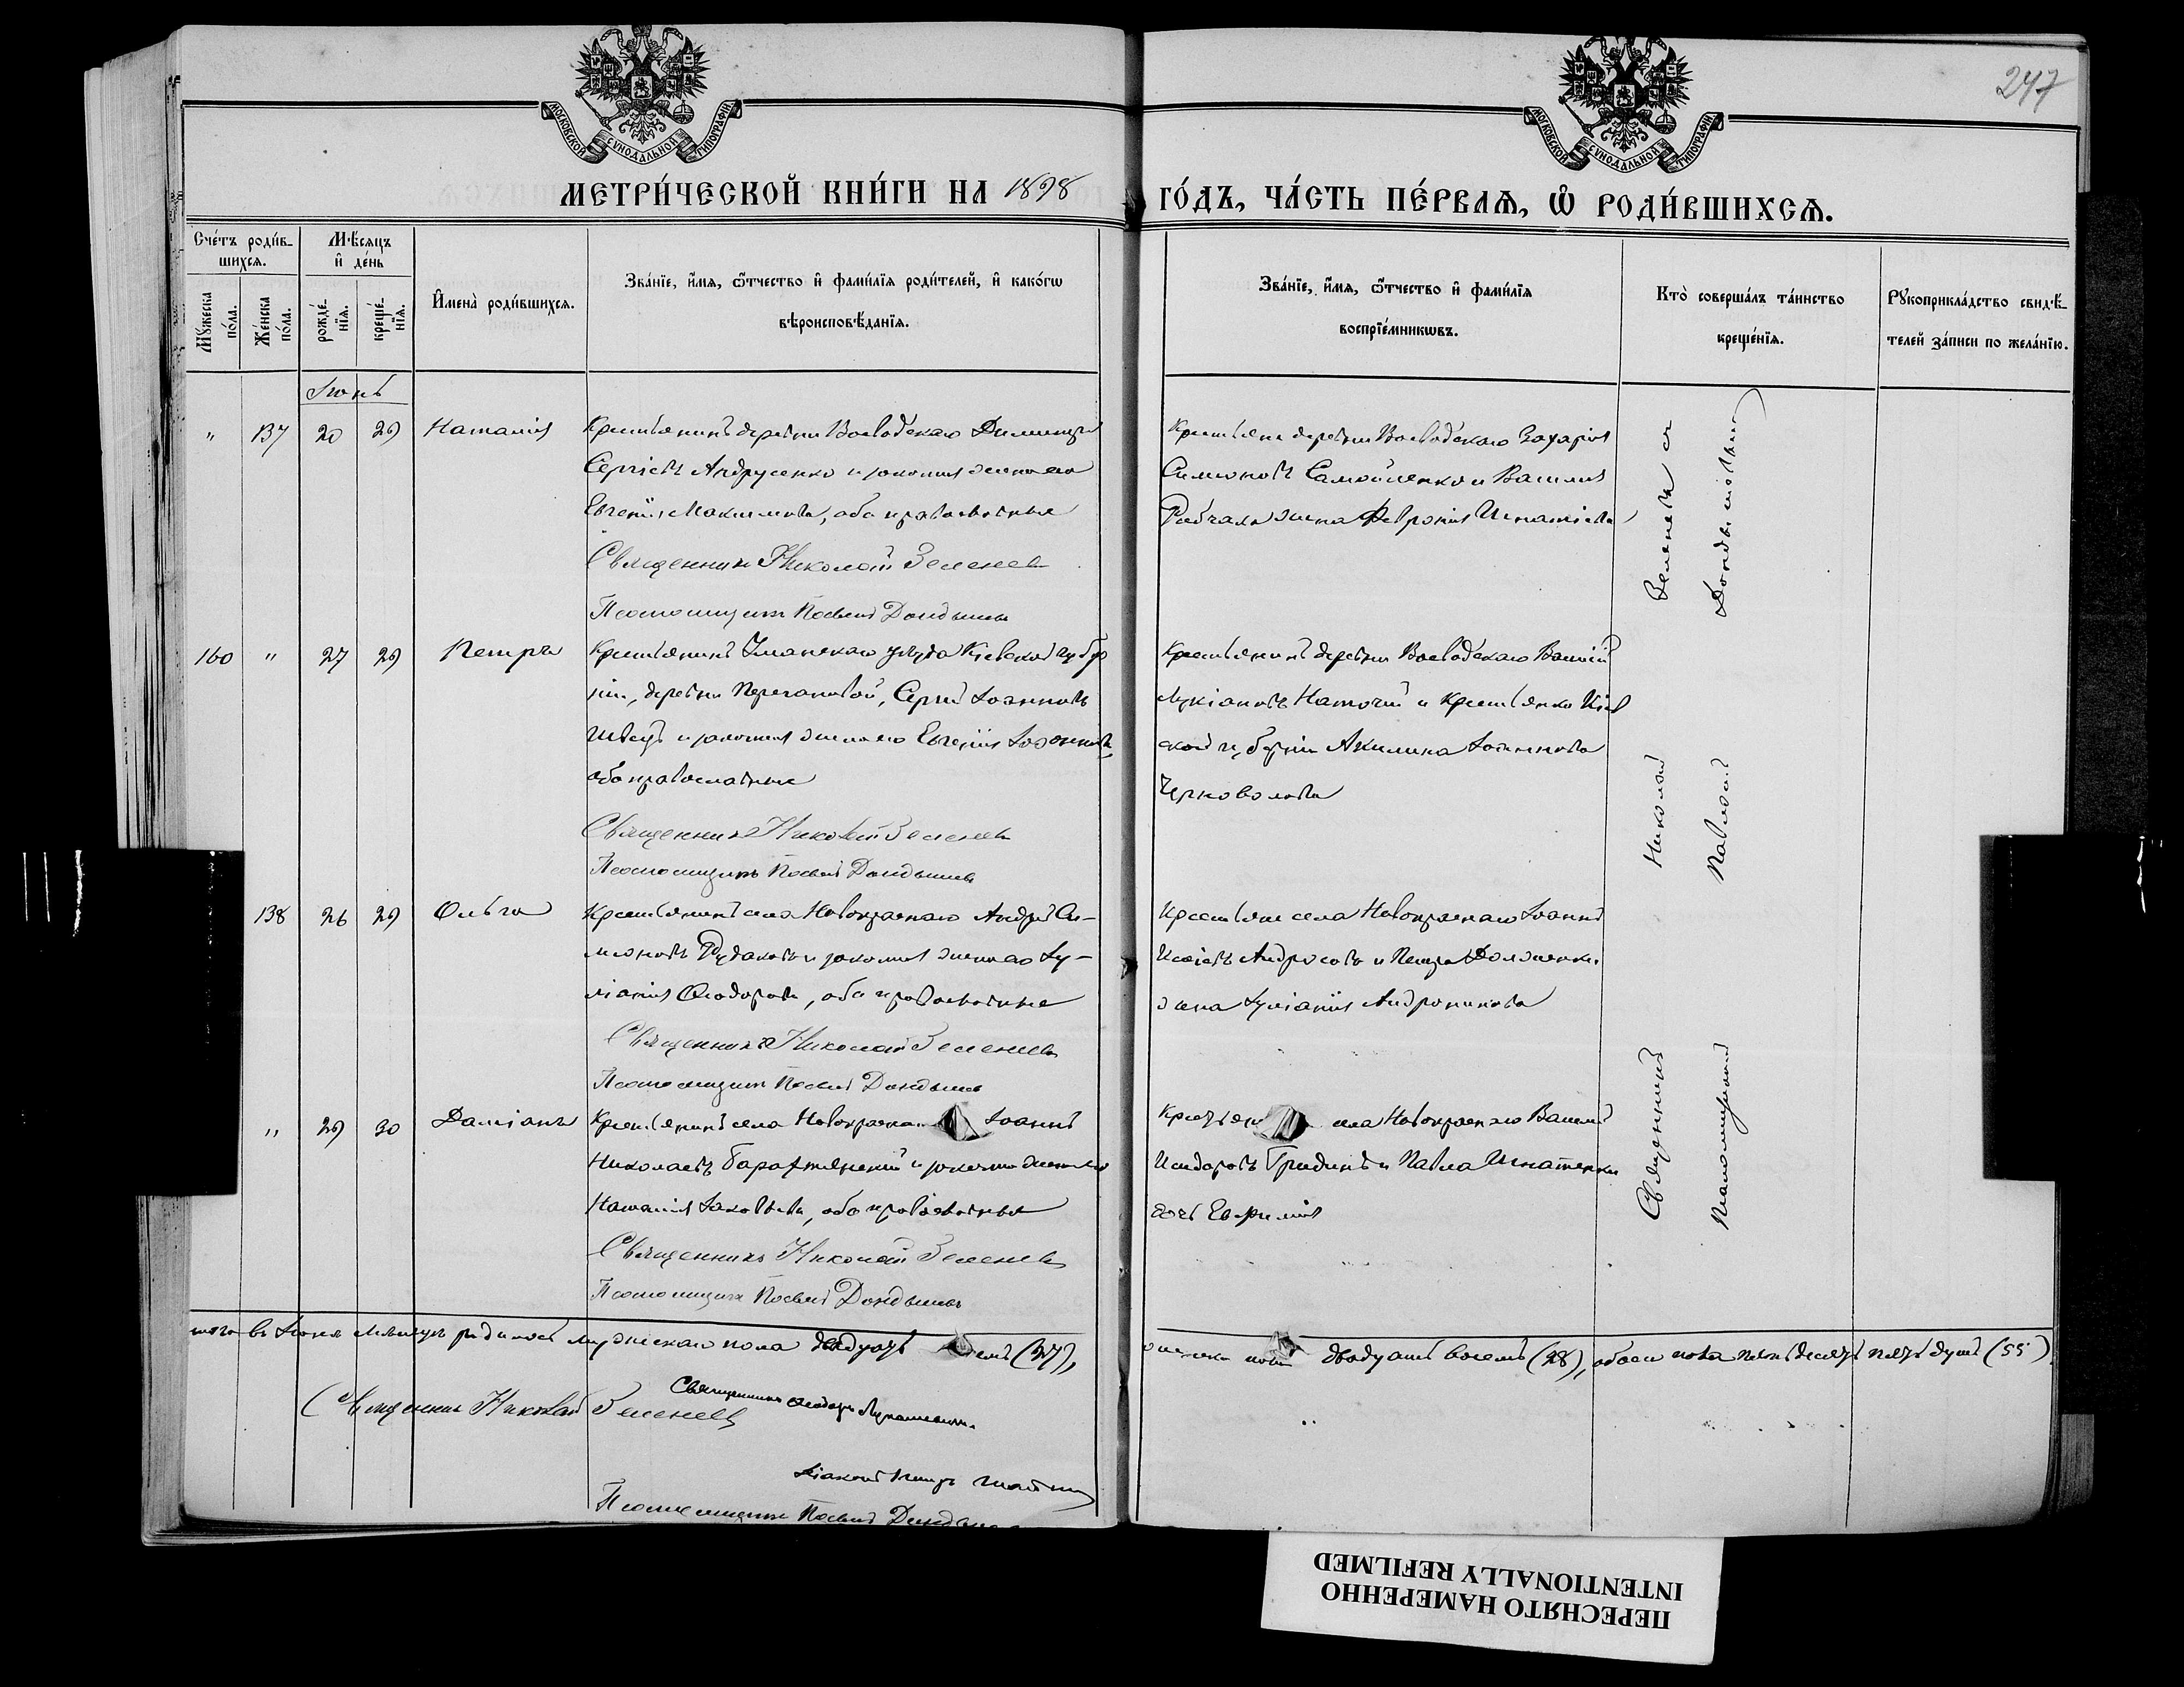 247
МОСКОВСКОЙ СѴНОДАЛЬНОЙ ТИПОГРАФІИ
МОСКОВСКОЙ СѴНОДАЛЬНОЙ ТИПОГРАФІИ
МЕТРИ́ЧЕСКОЙ КНИ́ГИ НА 1898 ГО́ДЪ, ЧА́СТЬ ПЕ́РВАЯ, Ѽ РОДИ́ВШИХСЯ.
Сче́тъ роди́в-
шихся.
Мѣ́сяцъ
и҆ де́нь
Мꙋ́жеска
по́ла.
Же́нска
по́ла.
рожде́-
нїя.
креще́-
нїя.
И҆мена̀ роди́вшихся.
Зва́нїе, и҆́мя, ѻ҆́тчество и҆ фами́лїя роди́телей, и҆ како́гѡ
вѣроисповѣ́данїя.
Зва́нїе, и҆́мя, ѻ҆́тчество и҆ фами́лїя
воспрїе́мникѡвъ.
Кто̀ соверша́лъ та́инство
креще́нїя.
Рꙋкоприкла́дство свидѣ́-
телей за́писи по жела́нїю.
Іюнь
" 137 20 29 Наталія
Крестьянинъ деревни Воеводскаго Димитрій
Сергіевъ Андрусенко и законная жена его
Евгенія Максимова, оба православные
Священникъ Николай Зеленевъ
Псаломщикъ Павелъ Дондышевъ
Крестьяне деревни Воеводскаго Захарія
Симоновъ Самойленко и Василія
жена Февронія Игнатіева
160 " 27 29 Петръ
Крестьянинъ Уманскаго уѣзда Кіевской губер
ніи, деревни Перегоновой, Сергій Іоанновъ
Швецъ и законная жена его Евгенія Іоаннова,
оба православные
Священникъ Николай Зеленевъ
Псаломщикъ Павелъ Дондышевъ
Крестьянинъ деревни Воеводскаго Василій
Лукіановъ и крестьянка Кіев
ской губерніи Акилина Іоаннова
Черноволова
138 26 29 Ольга
Крестьянинъ села Новокраснаго Андрей Си-
моновъ Рудаковъ и законная жена его Іу-
ліанія Ѳеодорова, оба православные
Священникъ Николай Зеленевъ
Псаломщикъ Павелъ Дондышевъ
Крестьяне села Новокраснаго Іоаннъ
Исаіевъ Андросовъ и Петра Долженки
жена Іуліанія Андроникова
" 29 30 Даміанъ
Крестьянинъ села Новокрасна Іоаннъ
Николаевъ и законная жена его
Наталія Іаковлева, оба православные
Священникъ Николай Зеленевъ
Псаломщикъ Павелъ Дондышевъ
Крестьян села Новокраснаго Василій
Исидоровъ Гридинъ и Павла Игнатенки
дочь Евфимія
Священникъ Николай Зеленевъ съ
Псаломщикомъ Павломъ Дондышевымъ
Итого въ Іюнѣ мѣсяцѣ родилось мужескаго пола двадцать семь (27),
женска пола двадцать восемь (28), обоего пола пятьдесятъ пять душъ (55)
Священникъ Николай Зеленевъ
Священникъ Ѳеодоръ
Діаконъ Петръ
Псаломщикъ Павелъ Дондышевъ
ПЕРЕСНЯТО НАМЕРЕННО
INTENTIONALLY REFILMED